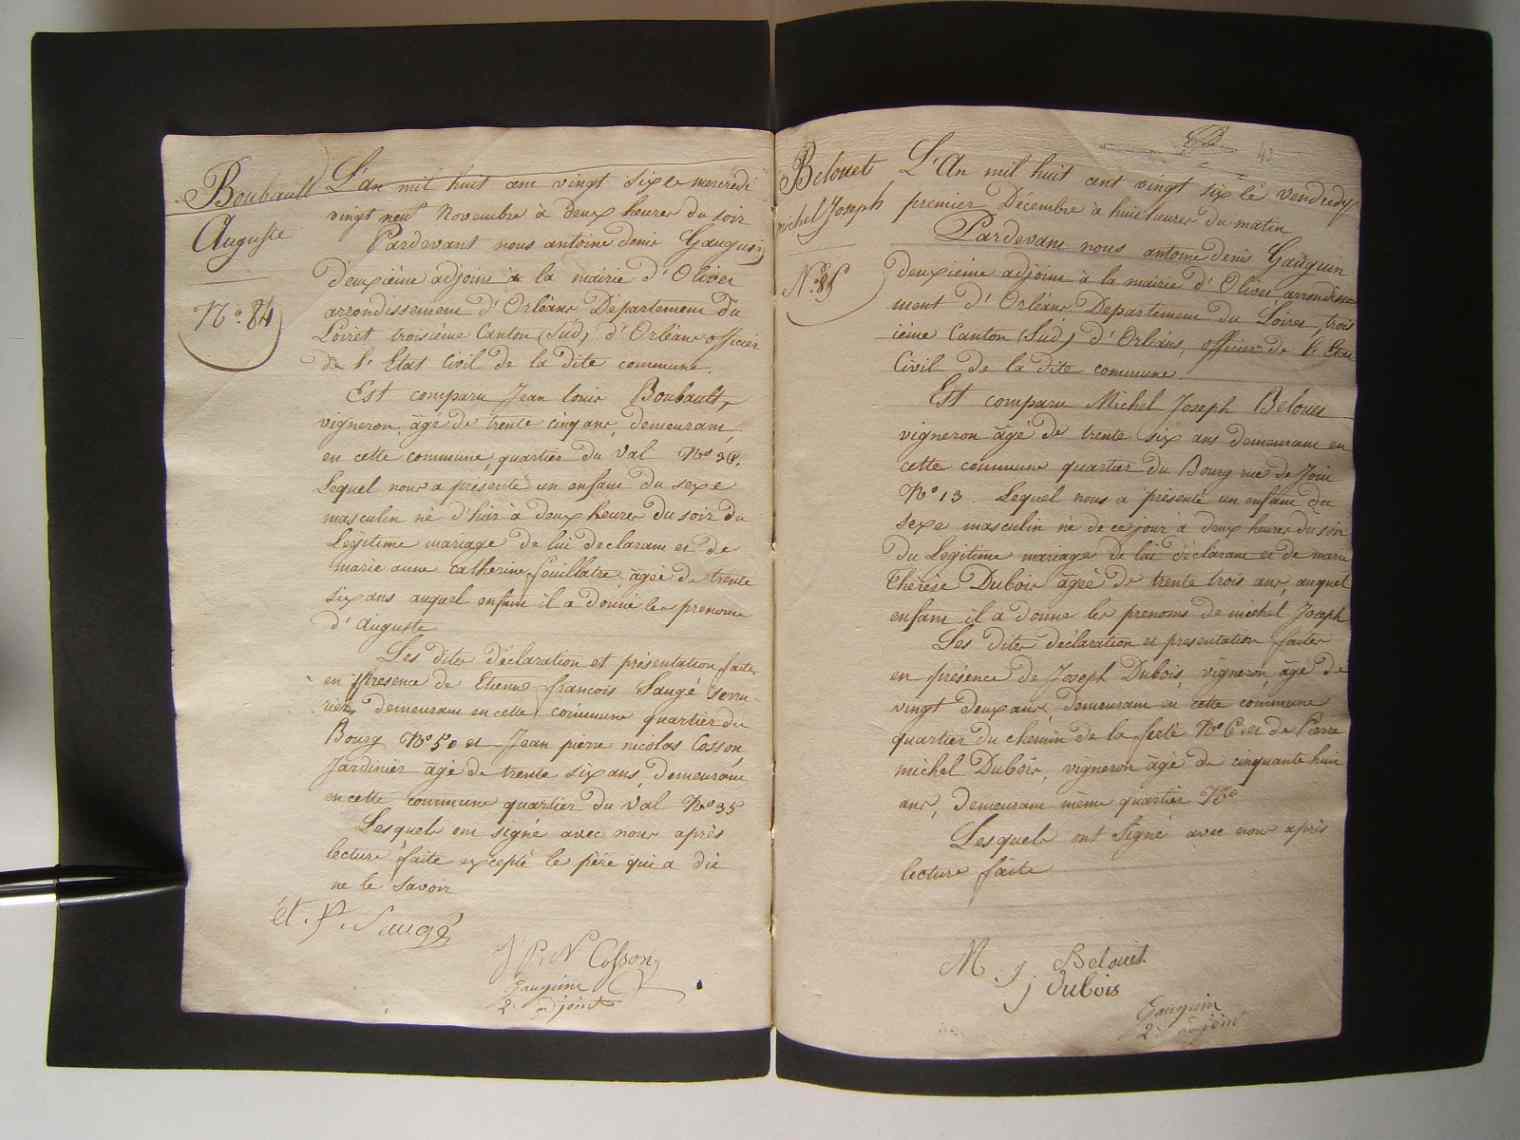 Boubault
Auguste
N.° 84
L'an mil huit cent vingt six le mercredi
vingt neuf Novembre à deux heures du soir
Pardevant nous antoine denis Gauguin
deuxième adjoint à la mairie d'Olivet
arrondissement d'Orléans Département du
Loiret troisième Canton (Sud) d'Orléans officier
de l'Etat Civil de la dite commune.
Est comparu Jean louis Boubault,
vigneron, âgé de trente cinq ans, demeurant
en cette commune, quartier du Val N.°
Lequel nous a présenté un enfant du sexe
masculin né d'hier à deux heures du soir du
Legitime mariage de lui declarant et de
Marie anne Catherine feuillatre âgée de trente
six ans auquel enfant il a donné les prenoms
d'Auguste
Les dites déclaration et présentation faites
en présence de Etienne françois Saugé Serru-
rier demeurant en cette commune quartier du
Bourg N.° 50 et Jean pierre nicolas Cosson,
Jardinier âgé de trente six ans, demeurant
en cette commune quartier du Val N.° 35
Lesquels ont signé avec nous après
lecture faite excepté le père qui a dit
ne le savoir
et. f. Saugé
J P. N Cosson
Gauguin
2e adjoint
Belouet
michel Joseph
N.° 85
L'An mil huit cent vingt six le vendredy
premier Décembre à huit heures du matin
Pardevant nous antoine denis Gauguin
deuxième adjoint à la mairie d'Olivet arrondisse
ment d'Orléans Département du Loiret, trois
ième Canton (Sud) d'Orléans, officier de l'Etat
Civil de la dite commune.
Est comparu Michel Joseph Belouet
vigneron âgé de trente six ans demeurant en
cette commune quartier du Bourg rue de
N.° 13. Lequel nous a présenté un enfant du
sexe masculin né de ce jour à deux heures du
du Legitime mariage de lui déclarant et de marie
Thérèse Dubois âgée de trente trois ans, auquel
enfant il a donné les prenoms de michel Joseph
Les dites déclaration et presentation faites
en présence de Joseph Dubois, vigneron, âgé de
vingt deux ans, demeurant en cette commune
quartier du chemin de la N.° 6 et de Pierre
michel Dubois, vigneron âgé de cinquante huit
ans, demeurant même quartier N.°
Lesquels ont Signé avec nous après
lecture faite
M. J. Belouet
J dubois
Gauguin
2e adjoint